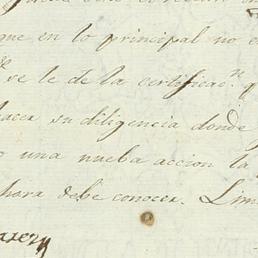 que en lo principal no
se le de la certificac.n q
hacer su diligencia donde
o una nueba accion la
hora debe conocer. Lim